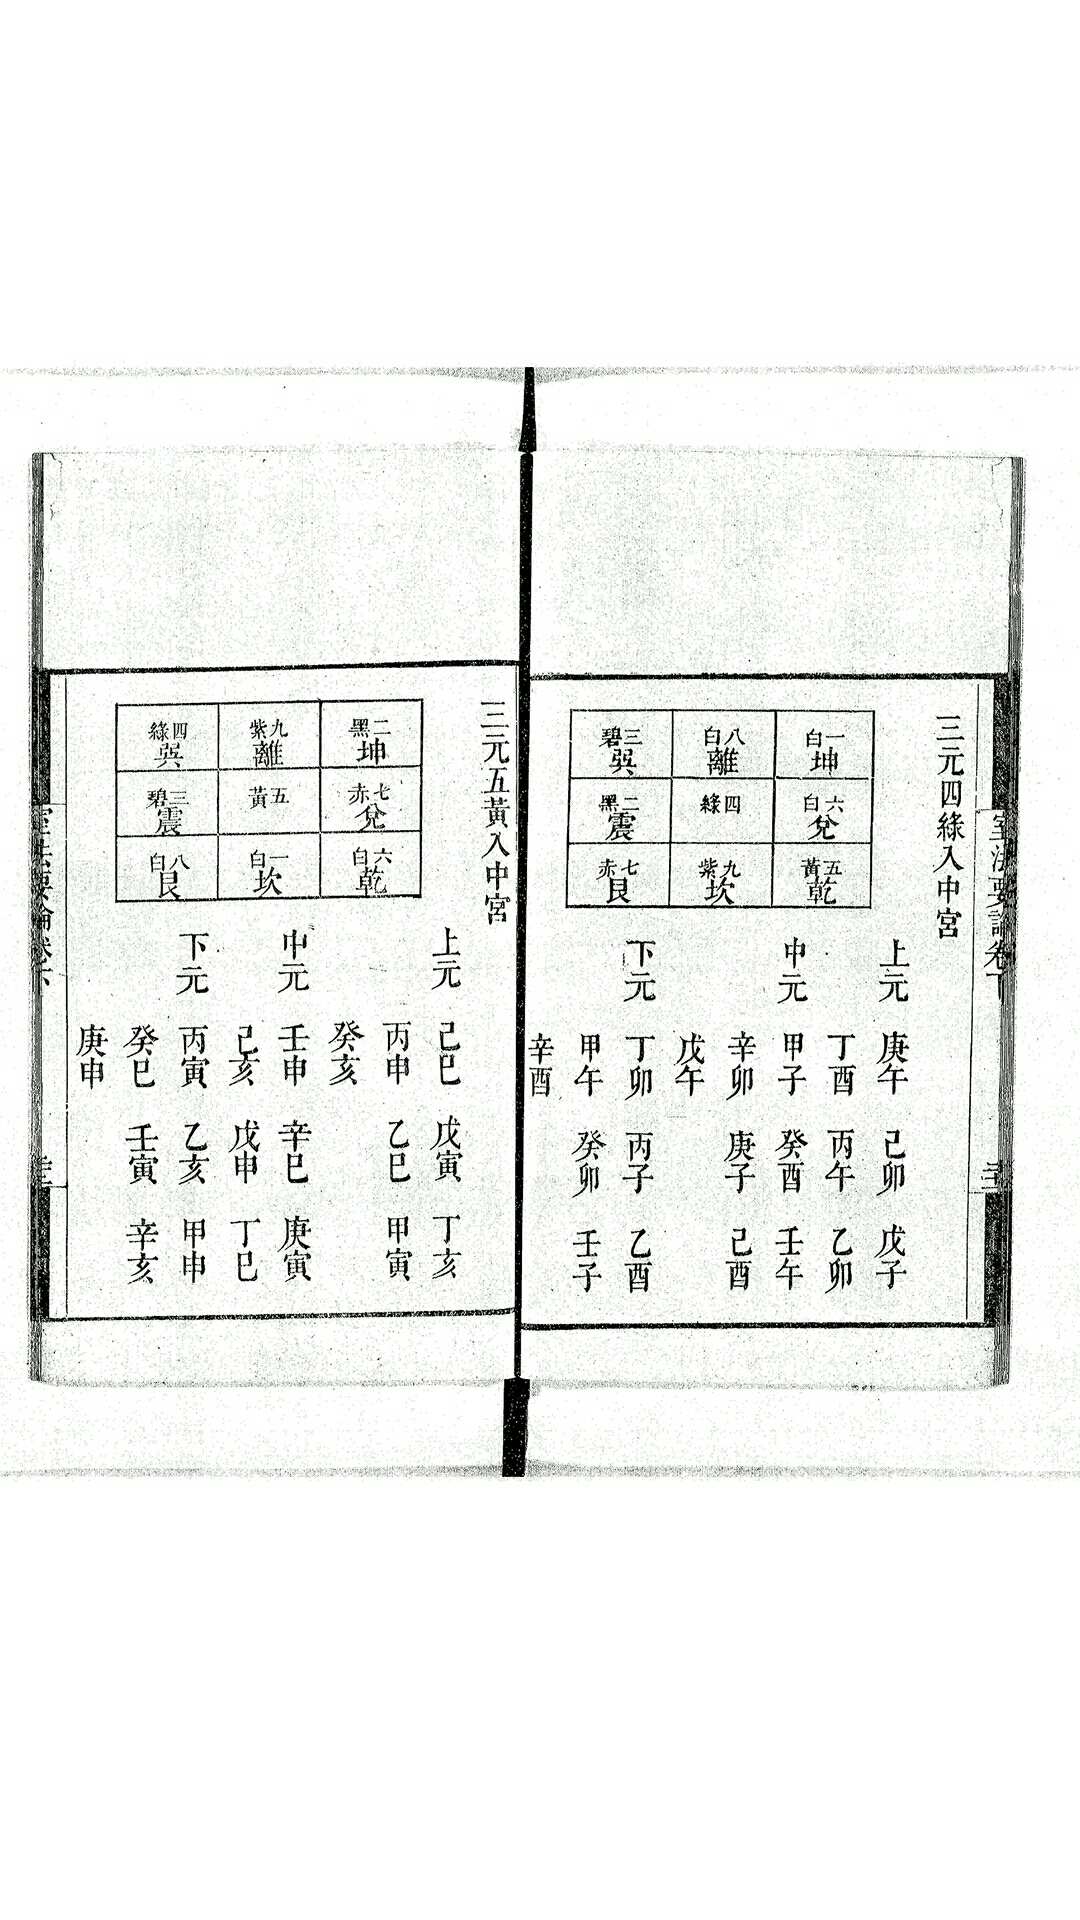 室法要論卷下
三元四綠入中宮
一白坤 八白離 三碧巽
六白兌 四綠 二黑震
五黃乾 九紫坎 七赤艮
上元 庚午 己卯 戊子
丁酉 丙午 乙卯
中元 甲子 癸酉 壬午
辛卯 庚子 己酉
戊午
下元 丁卯 丙子 乙酉
甲午 癸卯 壬子
辛酉
三元五黃入中宮
二黑坤 九紫離 四綠巽
七赤兌 五黃 三碧震
六白乾 一白坎 八白艮
上元 己巳 戊寅 丁亥
丙申 乙巳 甲寅
癸亥
中元 壬申 辛巳 庚寅
己亥 戊申 丁巳
下元 丙寅 乙亥 甲申
癸巳 壬寅 辛亥
庚申